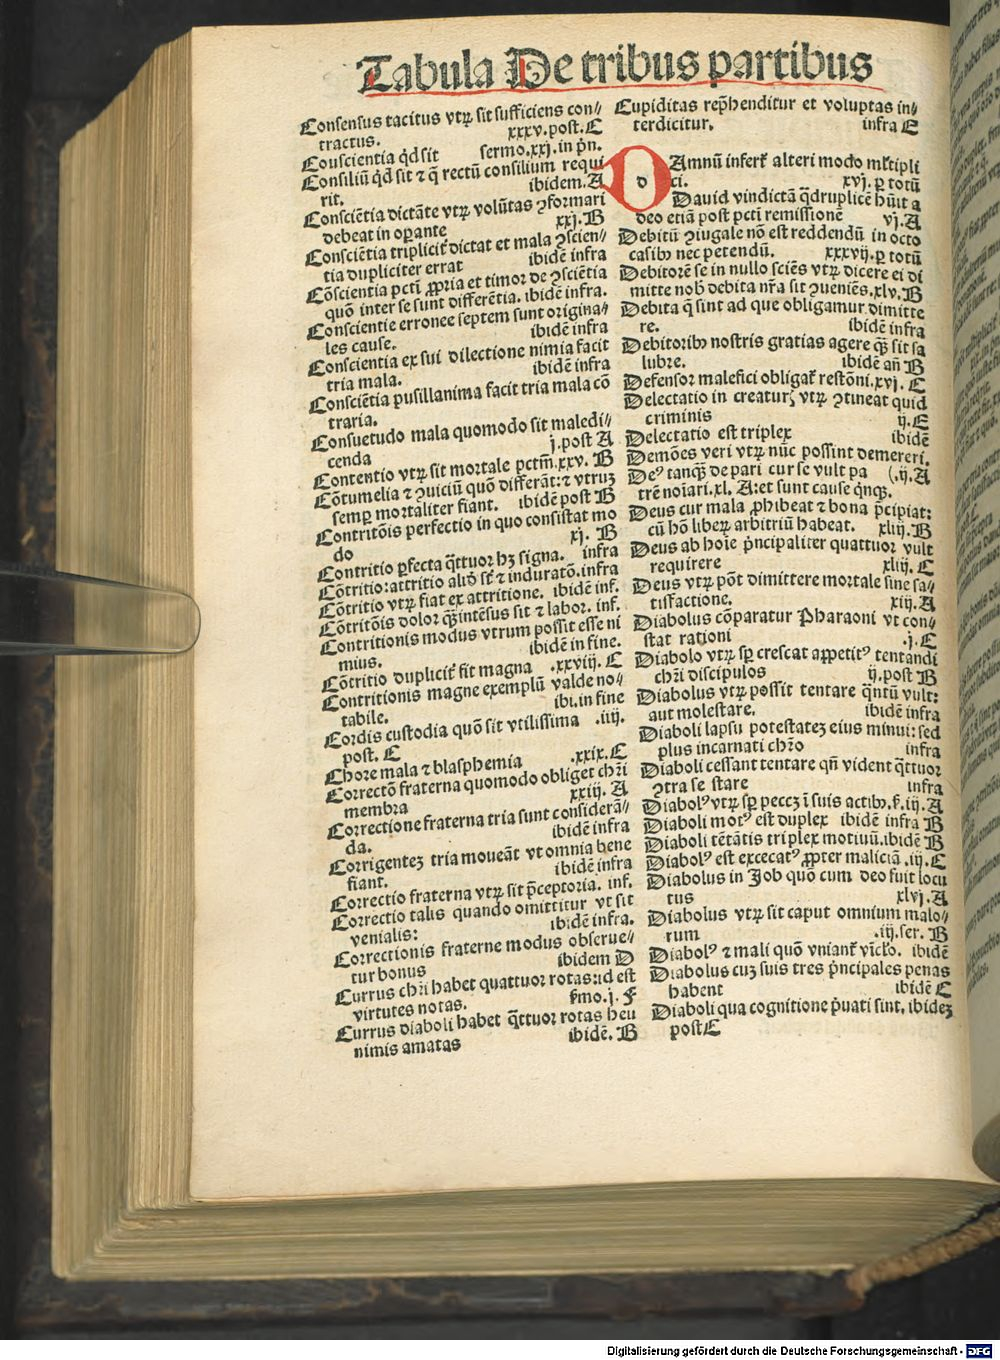 Tabula De tribus partibus
Consensus tacitus vtꝝ sit sufficiens con-
tractus. xxxv.post.C
Couscientia qͥd sit sermo.xxj.in pͥn.
Consiliū qͥd sit ⁊ q̄ rectū consilium requi
rit. ibidem.A
Consciētia dictāte vtꝝ volūtas ꝯformari
debeat in oꝑante xxj.B
Consciētia tripliciť dictat et mala ꝯscien-
tia dupliciter errat ibidē infra
Cōscientia pctī ꝓpria et timor de ꝯsciētia
quō inter se sunt differētia. ibidē infra.
Conscientie erronee septem sunt origina-
les cause. ibidē infra
Conscientia ex sui dilectione nimia facit
tria mala. ibidē infra
Consciētia pusillanima facit tria mala cō
traria.
Consuetudo mala quomodo sit maledi-
cenda j.post A
Contentio vtꝝ sit mortale pctm̄.xxv. B
Cōtumelia ⁊ ꝯuiciū quō differāt: ⁊ vtruꝫ
semꝑ mortaliter fiant. ibidē post B
Contritōis perfectio in quo consistat mo
do xj. B
Contritio ꝑfecta q̄ttuor hꝫ signa. infra
Cōtritio: attritio aliō sť ⁊ induratō. infra
Cōtritio vtꝝ fiat ex attritione. ibidē inf.
Cōtritōis dolor qꝫ̄ intēsus sit ⁊ labor. inf.
Contritionis modus vtrum possit esse ni
mius. ibidē in fine.
Cōtritio dupliciť fit magna .xxviij. C
Contritionis magne exemplū valde no-
tabile. ibi.in fine
Cordis custodia quō sit vtilissima .iiij.
post. C
Chore mala ⁊ blasphemia .xxix.C
Correctō fraterna quomodo obliget chr̄i
membra xxiij. A
Correctione fraterna tria sunt considerā-
da. ibidē infra
Corrigenteꝫ tria moueāt vt omnia bene
fiant. ibidē infra
Correctio fraterna vtꝝ sit p̄ceptoria. inf.
Correctio talis quando omittitur vt sit
venialis: ibidē infra.
Correctionis fraterne modus obserue-
tur bonus ibidem D
Currus chr̄i habet quattuor rotas: id est
virtutes notas. ẜmo.j. F
Currus diaboli habet q̄ttuor rotas heu
nimis amatas ibidē. B
Cupiditas rep̄henditur et voluptas in-
terdicitur. infra E
d
DAmnū inferť alteri modo ml̓tipli
ci. xvj. ꝑ totū
Dauid vindictā qͣdruplicē hūit a
deo etiā post pctī remissionē vj.A
Debitū ꝯiugale nō est reddendū in octo
casibꝰ nec petendū. xxxvij.ꝑ totū
Debitorē se in nullo sciēs vtꝝ dicere ei di
mitte nob̄ debita nr̄a sit ꝯueniēs.xlv.B
Debita q̄ sint ad que obligamur dimitte
re. ibidē infra
Debitoribꝰ nostris gratias agere qꝫ̄ sit sa
lubre. ibidē añ B
Defensor malefici obligať restōni.xvj. C
Delectatio in creaturꝭ vtꝝ ꝯtineat quid
criminis ij.E
Delectatio est triplex ibidē
Demōes veri vtꝝ nūc possint demereri.
Deꝰ tanqꝫ̄ de pari cur se vult pa (.ij.A
trē noīari.xl. A: et sunt cause qͥnqꝫ.
Deus cur mala ꝓhibeat ⁊ bona p̄cipiat:
cū hō liberꝝ arbitriū habeat. xliij.B
Deus ab hoīe pͥncipaliter quattuor vult
requirere xliij. C
Deus vtꝝ pōt dimittere mortale sine sa-
tisfactione. xiij.A
Diabolus cōparatur Pharaoni vt con-
stat rationi .j.C
Diabolo vtꝝ sꝑ crescat appetitꝰ tentandi
chr̄i discipulos ij.post B
Diabolus vtꝝ possit tentare q̄ntū vult:
aut molestare. ibidē infra
Diaboli lapsu potestateꝫ eius minui: sed
plus incarnati chr̄o infra
Diaboli cessant tentare qñ vident q̄ttuor
ꝯtra se stare infra
Diabolꝰ vtꝝ sꝑ peccꝫ ī suis actibꝰ.ẜ.iij.A
Diaboli motꝰ est duplex ibidē infra B
Diaboli tētātis triplex motiuū.ibidē B
Diabolꝰ est excecatꝰ ꝓpter maliciā .iij.C
Diabolus in Job quō cum deo fuit locu
tus xlvj.A
Diabolus vtꝝ sit caput omnium malo-
rum .iij.ser. B
Diabolꝰ ⁊ mali quō vnianť vīclo. ibidē
Diabolus cuꝫ suis tres pͥncipales penas
habent ibidē C
Diaboli qua cognitione pͥuati sint. ibideꝫ
post C
Digitalisierung gefördert durch die Deutsche Forschungsgemeinschaft - DFG